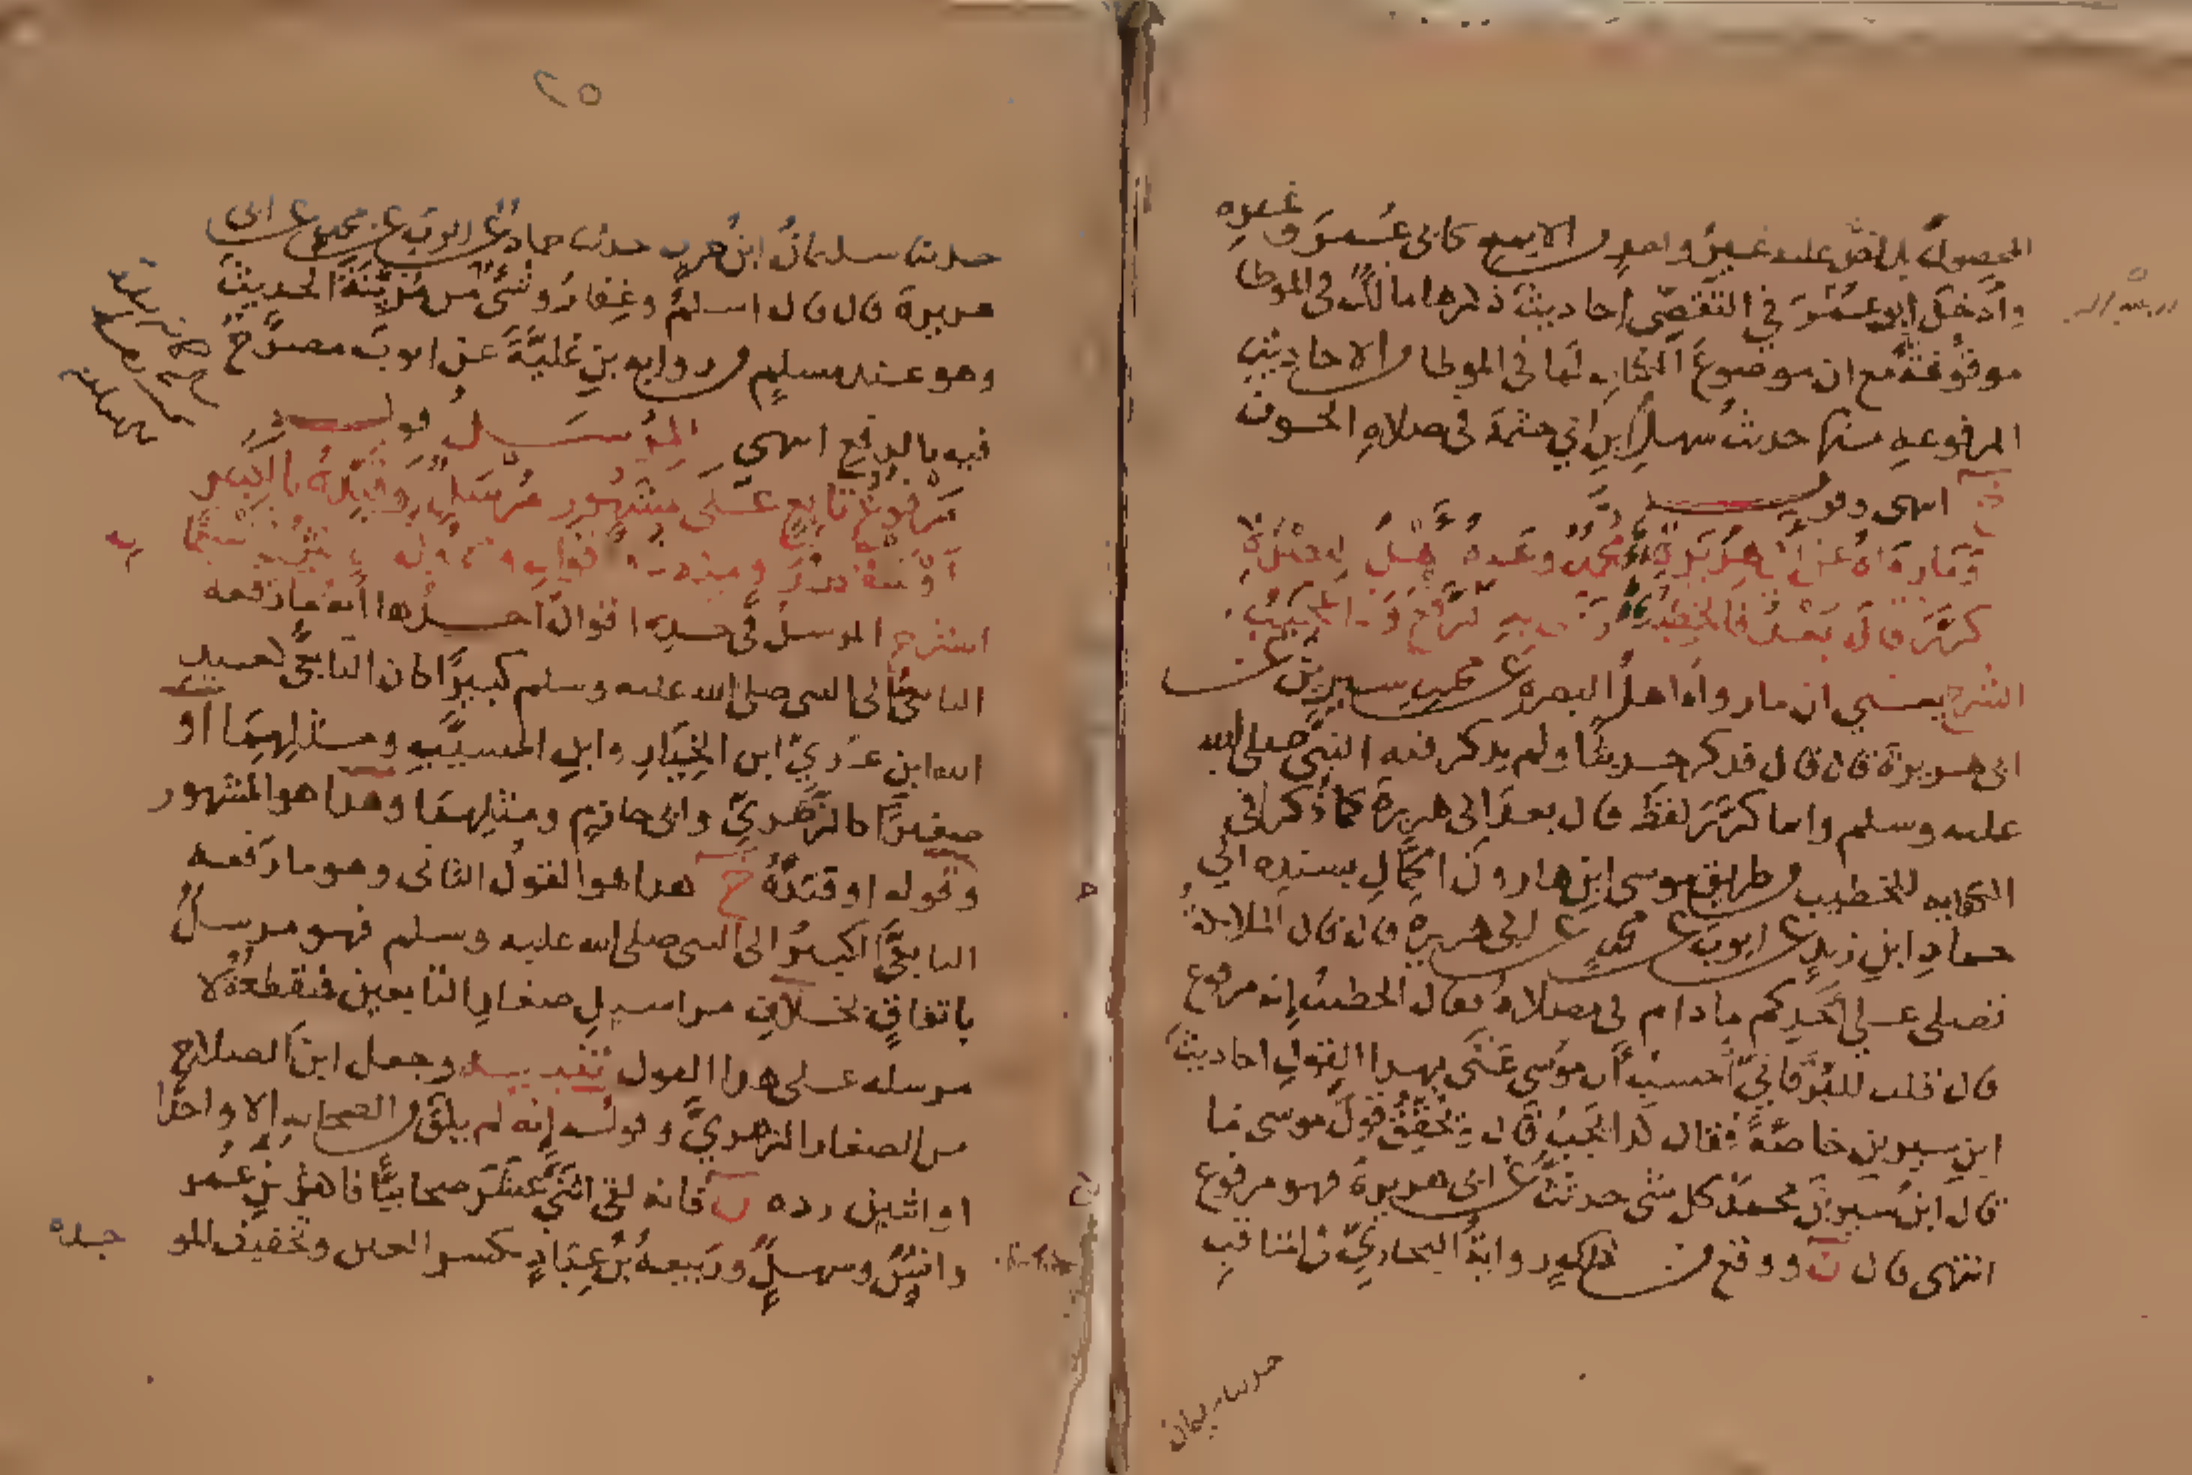 المحصول بل نص عليه غير واحد من الايمه كابي عمر وغيره
وادخل ابو عمر في التقصي احاديث ذكرها مالك في الموطا
موقوفة مع ان موضوع الكتاب لما في الموطا من الاحاديث
المرفوعه منها حديث سهل ابن ابي حثمة في صلاة الخوف
انتهى وقوله
وما رواه عن ابي هريرة محمد وعنه اهل البصرة
كرر قال بعد فالخطيب روى به الرفع وذا عجيب
الشرح يعني ان ما رواه اهل البصره عن محمد بن سيرين عن
ابي هريرة قال قال فذكر حديثا ولم يذكر فيه النبي صلى الله
عليه وسلم وانما كرر لفظ قال بعد ابي هريرة كما ذكر في
الكفايه للخطيب من طريق موسى ابن هارون الحمال بسنده الى
حماد ابن زيد عن ايوب عن محمد عن ابي هريرة قال قال الملايكة
تصلي على احدكم ما دام في مصلاه فقال الخطيب انه مرفوع
قال قلت للبرقاني احسب ان موسى عنى بهذا القول احاديث
ابن سيرين خاصة فقال كذا يجب قال وتحقق قول موسى ما
قال ابن سيرين محمد كل شي حدثت عن ابي هريرة فهو مرفوع
انتهى قال ن ووقع من ذلك في رواية البخاري في المناقب
حدثنا سليمان
٢٥
حدثنا سليمان ابن حرب حدثنا حماد عن ايوب عن محمد عن ابي
هريرة قال قال اسلم وغفار وشئ من مزينة الحديث
وهو عند مسلم من رواية بن علية عن ايوب مصرح
فيه بالرفع انتهى المرسل قوله
مرفوع تابع على مشهور مرسل وقيده بالكبير
الشرح المرسل في حده اقوال احدها انه ما رفعه
التابعي الى النبي صلى الله عليه وسلم كبيرا كان التابعي كعبيد
الله ابن عدي ابن الخيار وابن المسيب ومثلهما او
صغيرا كالزهري وابي حازم ومثلهما وهذا هو المشهور
وقوله او قيده خ هذا هو القول الثاني وهو ما رفعه
التابعي الكبير الى النبي صلى الله عليه وسلم فهو مرسل
باتفاق بخلاف مراسيل صغار التابعين فمنقطعة لا
مرسله على هذا القول تنبيه وجعل ابن الصلاح
من الصغار الزهري وقوله انه لم يلق من الصحابه الا واحدا
او اثنين رده ن فانه لقي اثني عشر صحابيا فاهو بن عمر
وانس وسهل وربيعة بن عباد بكسر العين وتخفيف المو